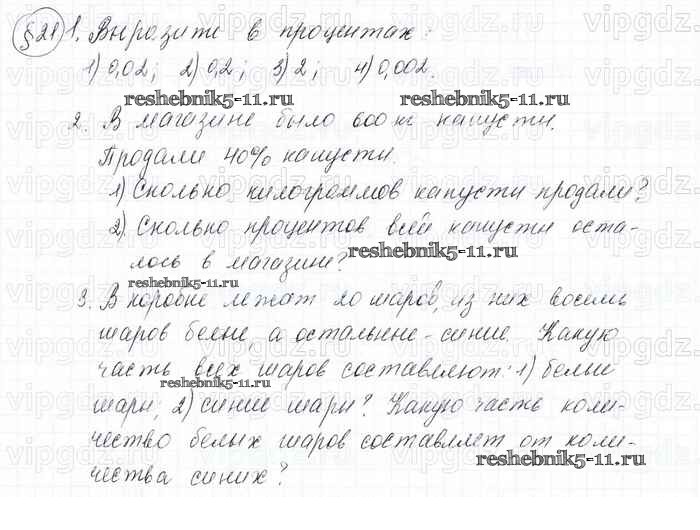 §21 1. Выразите в процентах:
1) 0,02; 2) 0,2; 3) 2; 4) 0,002.
reshebnik5-11.ru reshebnik5-11.ru
2. В магазине было 600 кг капусты.
Продали 40% капусты.
1) Сколько килограммов капусты продали?
2) Сколько процентов всей капусты оста-
reshebnik5-11.ru
лось в магазине?
reshebnik5-11.ru
3. В коробке лежат 20 шаров, из них восемь
шаров белые, а остальные - синие. Какую
часть всех шаров составляют: 1) белые
reshebnik5-11.ru
шары; 2) синие шары? Какую часть коли-
чество белых шаров составляет от коли-
reshebnik5-11.ru
чества синих?